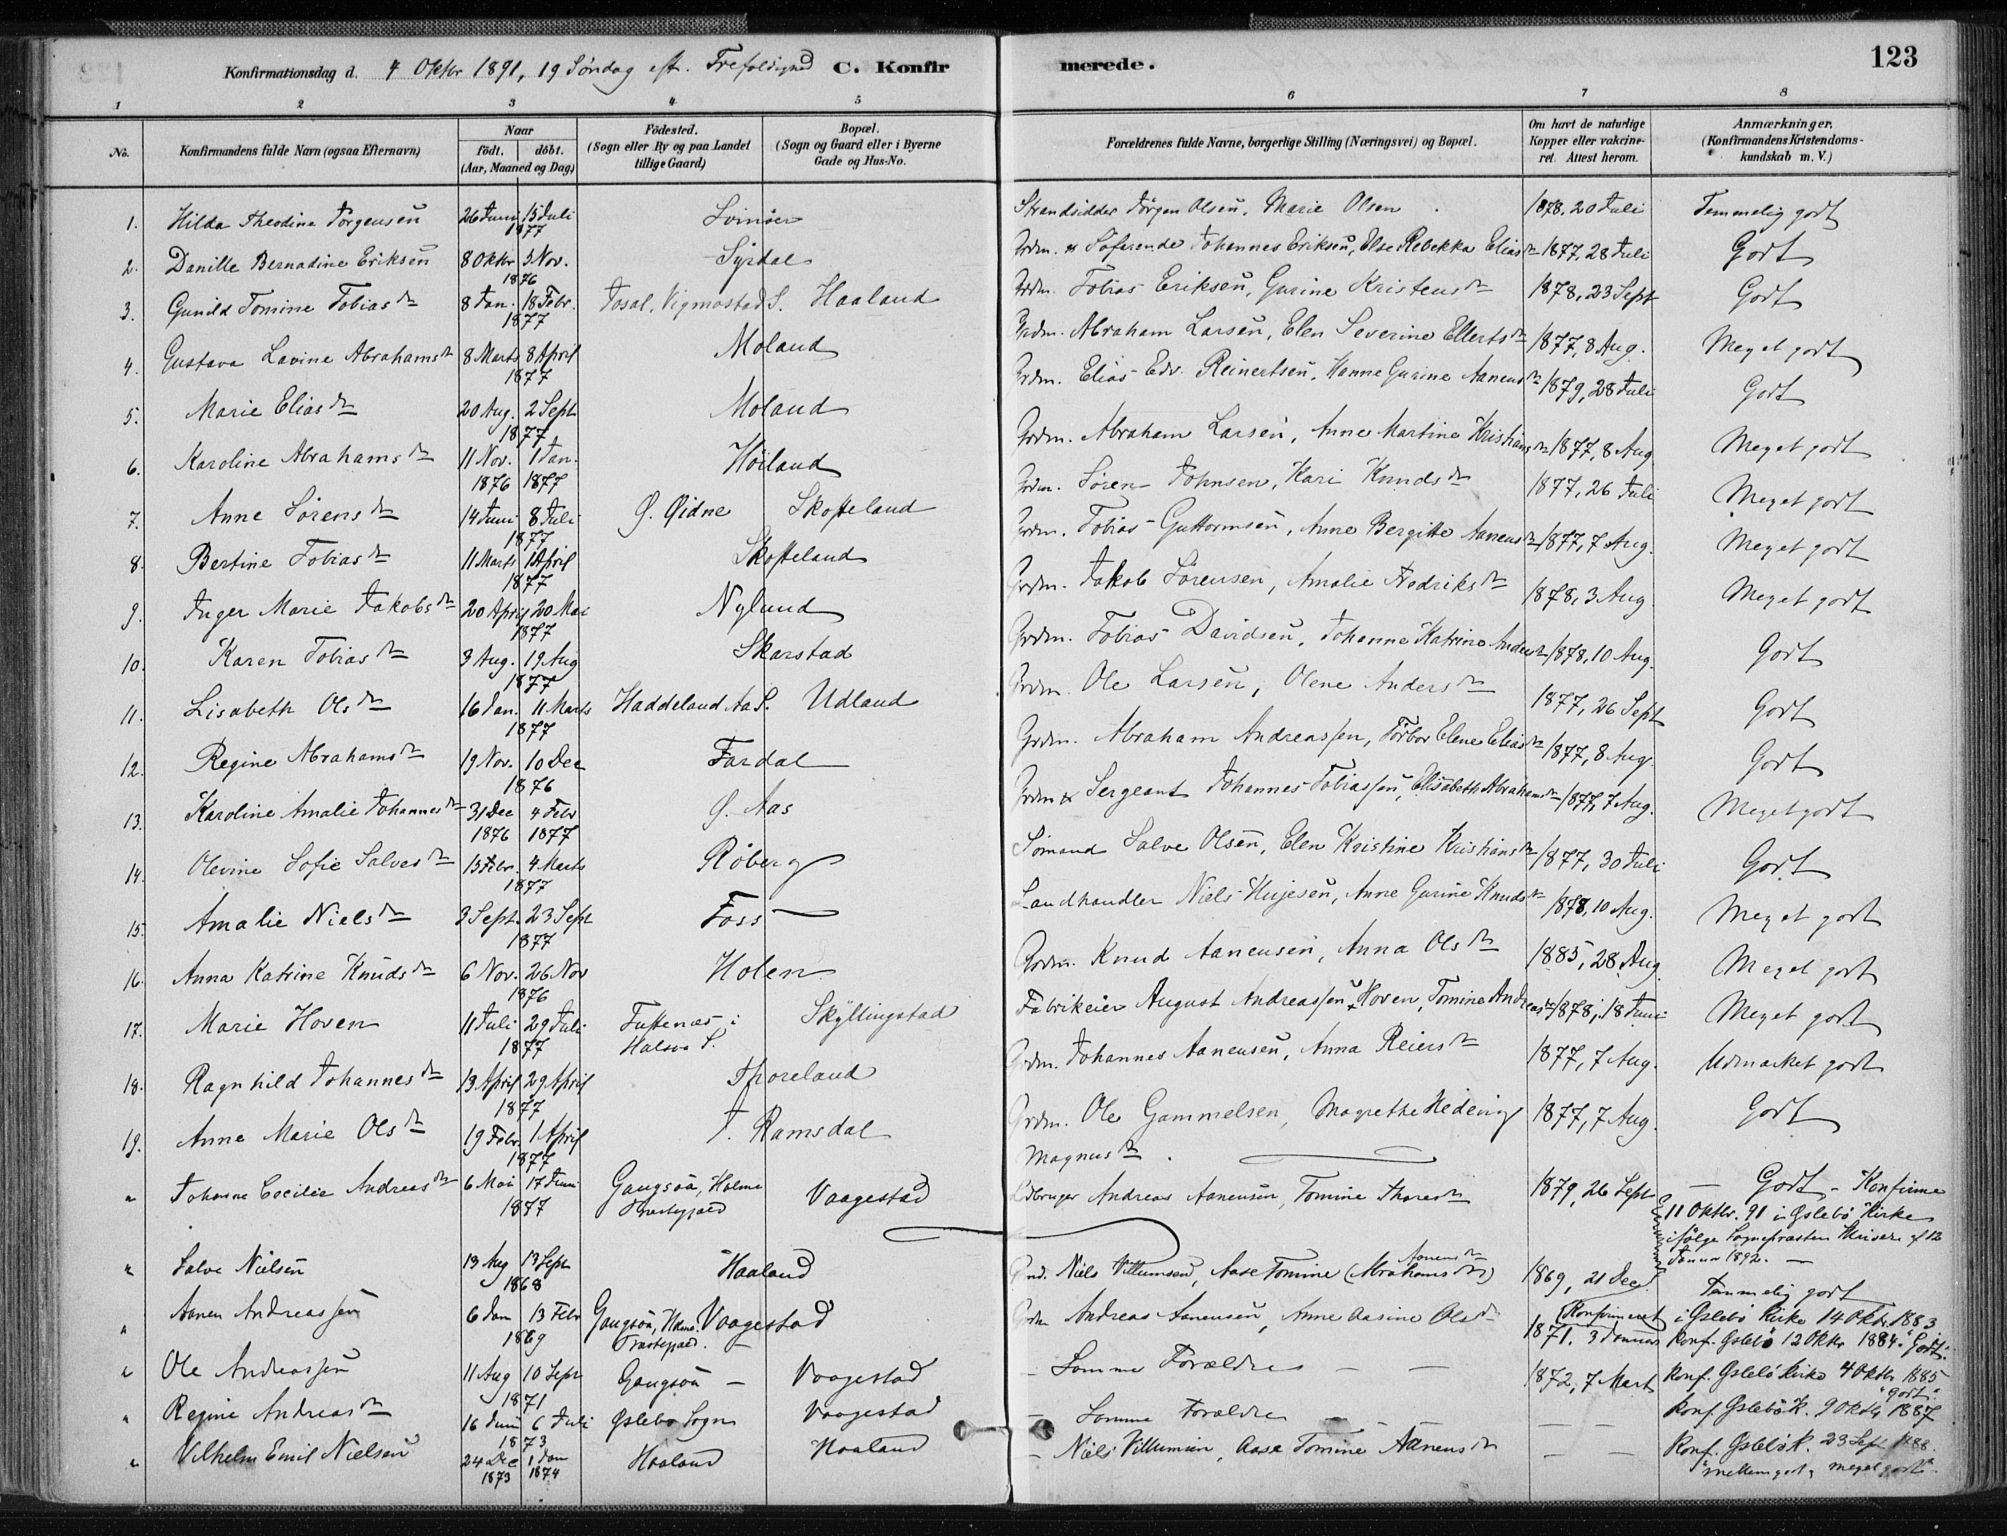 123
Konfirmationsdag d. 4 Oktbr 1891, 19 Søndag eft. Trefoldighed C. Konfirmerede.
1 2 3 4 5 6 7 8
No. Konfirmandens fulde Navn (ogsaa Efternavn) Naar födt. döbt. (Aar, Maaned og Dag) Födested. (Sogn eller By og paa Landet tillige Gaard) Bopæl. (Sogn og Gaard eller i Byerne Gade og Hus-No. Forældrenes fulde Navne, borgerlige Stilling (Næringsvei) og Bopæl. Om havt de naturlige Kopper eller vakcineret. Attest herom. Anmærkninger. (Konfirmandens Kristendomskundskab m. V.)
1. Hilda Theodine Jørgensen 26 Juni 15 Juli 1877 Svinøer Strandsidder Jørgen Olsen, Marie Olsen 1878, 20 Juli Temmelig godt
2. Danille Bernadine Eriksen 8 Oktbr 5 Nov. 1876 Syrdal Grdm. & Søfarende Johannes Eriksen, Else Rebekka Eliasdtr 1877, 28 Juli Godt
3. Gunild Tomine Tobiasdtr 8 Jan. 18 Febr. 1877 Josal, Vigmostad S. Haaland Grdm. Tobias Eriksen, Gurine Kristensdtr 1878, 23 Sept Godt
4. Gustava Lavine Abrahamsdtr 8 Marts 8 April 1877 Moland Grdm. Abraham Larsen, Elen Severine Ellertsdtr 1877, 8 Aug. Meget godt
5. Marie Eliasdtr 20 Aug. 2 Sept 1877 Moland Grdm. Elias Edv. Reinertsen, Hanne Gurine Aanensdtr 1879, 28 Juli Godt
6. Karoline Abrahamsdtr 11 Nov. 1876 1 Jan. 1877 Høiland Grdm. Abraham Larsen, Anne Martine Kristiansdtr 1877, 8 Aug. Meget godt
7. Anne Sørensdtr 14 Juni 8 Juli 1877 Ø. Øidne Skofteland Grdm. Søren Johnsen, Kari Knudsdtr 1877, 26 Juli Meget godt
8. Bertine Tobiasdtr 11 Marts 1 April 1877 Skofteland Grdm. Tobias Guttormsen, Anne Bergitte Aanensdtr 1877, 7 Aug. Meget godt
9. Inger Marie Jakobsdtr 20 April 20 Mai 1877 Nylund Grdm. Jakob Sørensen, Amalie Fredriksdtr 1878, 3 Aug. Meget godt
10. Karen Tobiasdtr 3 Aug. 19 Aug 1877 Skarstad Grdm. Tobias Davidsen, Johanne Katrine Andersdtr 1878, 10 Aug. Godt
11. Lisabeth Olsdtr 16 Jan. 11 Marts 1877 Haddeland Aa S. Udland Grdm. Ole Larsen, Olene Andersdtr 1877, 26 Sept Godt
12. Regine Abrahamsdtr 19 Nov. 10 Dec 1876 Fardal Grdm. Abraham Andreassen, Torbor Elene Eliasdtr 1877, 8 Aug. Godt
13. Karoline Amalie Johannesdtr 31 Dec 1876 4 Febr 1877 Ø. Aas Grdm & Sergeant Johannes Tobiassen, Elisabeth Abrahamsdtr 1877, 7 Aug. Meget godt
14. Olevine Sofie Salvesdtr 13 Febr. 4 Marts 1877 Røberg Sømand Salve Olsen, Elen Kristine Kristiansdtr 1877, 30 Juli Godt
15. Amalie Nielsdtr 3 Sept. 23 Sept 1877 Foss Landhandler Niels Hujesen, Anne Gurine Knudsdtr 1878, 10 Aug. Meget godt
16. Anna Katrine Knudsdtr 6 Nov. 26 Nov 1876 Holen Grdm. Knud Aanensen, Anna Olsdtr 1885, 28 Aug. Meget godt
17. Marie Hoven 11 Juli 29 Juli 1877 Tuftenæs i Halsaa S. Skyllingstad Fabrikeier August Andreassen Hoven, Tomine Andreasdtr 1878, 18 Juni Meget godt
18. Ragnhild Johannesdtr 13 April 29 April 1877 Thoreland Grdm. Johannes Aanensen, Anna Reiersdtr 1877, 7 Aug. Udmærket godt
19. Anne Marie Olsdtr 19 Febr. 1 April 1877 I. Ramsdal Grdm. Ole Gammelsen, Magrethe Hedevig Magnusdtr. 1877, 7 Aug. Godt
" Johanne Cecilie Andreasdtr 6 Mai 17 Juni 1877 Gangsøa, Holme Præstegjæld Vaagestad Andreas Aanensen, Tomine Tharesdtr 1879, 26 Sept Godt - Konfirme 11 Oktbr. 91 i Øslebø Kirke ifølge Sognepræsten af 12 Januar 1892.
" Salve Nielsen 13 Aug 13 Sept 1868 Haaland Grd. Niels Villumsen, Aase Tomine (Abrahamsdtr) Aanensdtr 1869, 21 Dec. Temmelig godt (Konfirmeret i Øslebø Kirke 14 Oktbr. 1883
" Aanen Andreassen 6 Jan 13 Febr 1869 Gangsøa, Holme Præstegjæld. Vaagestad Grdm Andreas Aanensen, Anne Aasine Olsdtr 1871. 3 Januar Konf. Øslebø 12 Oktbr 1884. "Godt."
" Ole Andreassen 11 Aug 10 Sept 1871 Gangsøa - Vaagestad - Samme Forældre - - 1872, 7 Mart Konf. Øslebø Kirke 4 Oktbr 1885 "godt".
" Regine Andreasdtr 16 Juni 6 Juli 1873 Øslebø Sogn Vaagestad - Samme Forældre - - Konf Øslebø K. 9 Oktbr 1887
" Vilhelm Emil Nielsen 24 Dec 1873 1 Jan 1874 Haaland Haaland - Niels Villumsen, Aasa Tomine Aanensdtr - - Konf. Øslebø K. 23 Sept 1888. "mellem godt & meget godt".